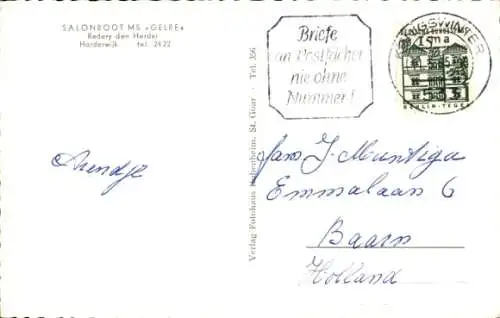 SALONBOOT MS »GELRE«
Redery den Herder
Harderwijk tel. 2422
Briefe
an Postfächer
nie ohne
Nummer!
KÖNIGSWINTER
BERLIN-TEGEL
Verlag Fotohaus St. Goar · Tel. 356
Fam J. Muntiga
Emmalaan 6
Baarn
Holland